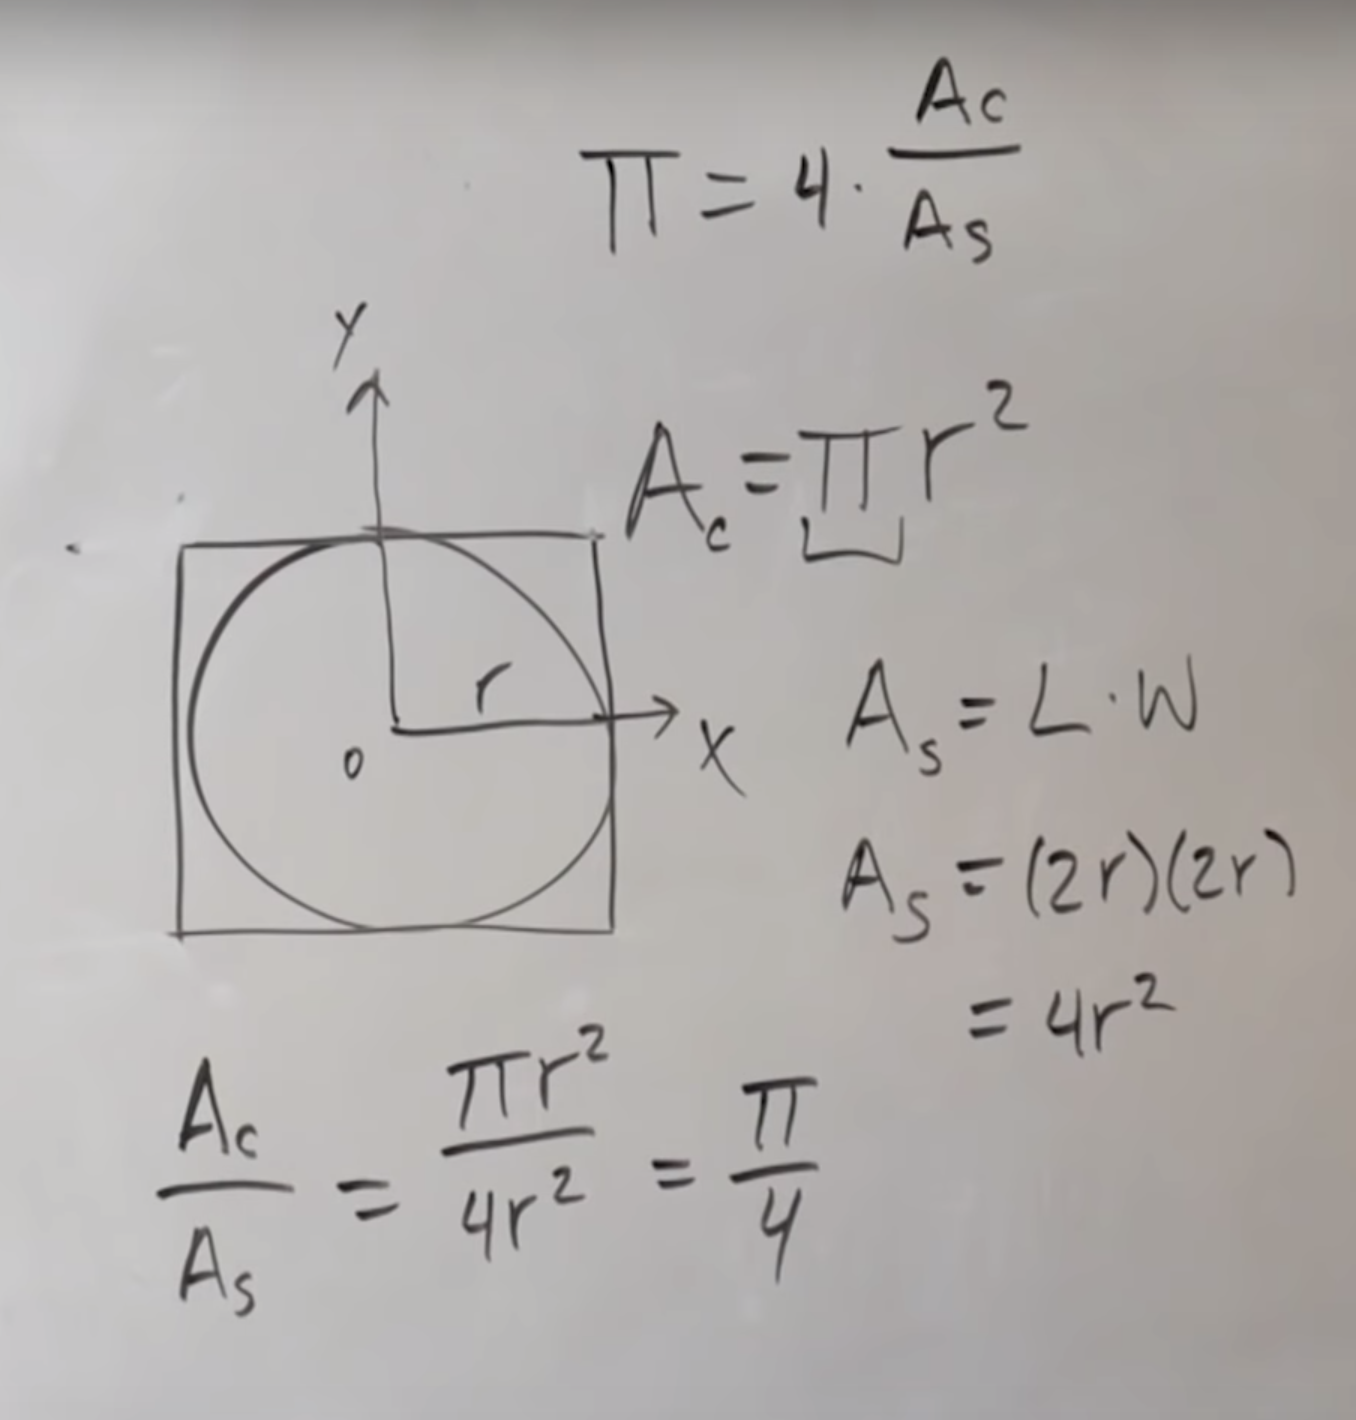 π = 4 · Ac/As
Y
Ac = πr²
r
As = L · W
o
X
As = (2r)(2r)
= 4r²
Ac/As = πr²/4r² = π/4